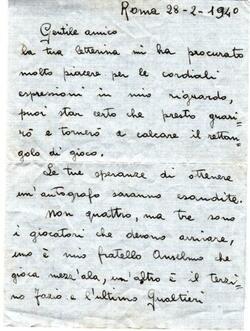 Roma 28-2-1940
Gentile amico
la tua letterina mi ha procurato
molto piacere per le cordiali
espressioni in mio riguardo,
puoi star certo che presto guari-
rò e tornerò a calcare il rettan-
golo di gioco.
Le tue speranze di ottenere
un'autografo saranno esaudite.
Non quattro, ma tre sono
i giocatori che devono arrivare,
uno è mio fratello Anselmo che
gioca mezz'ala, un'altro è il terzi-
no Fazio e l'ultimo Gualtieri